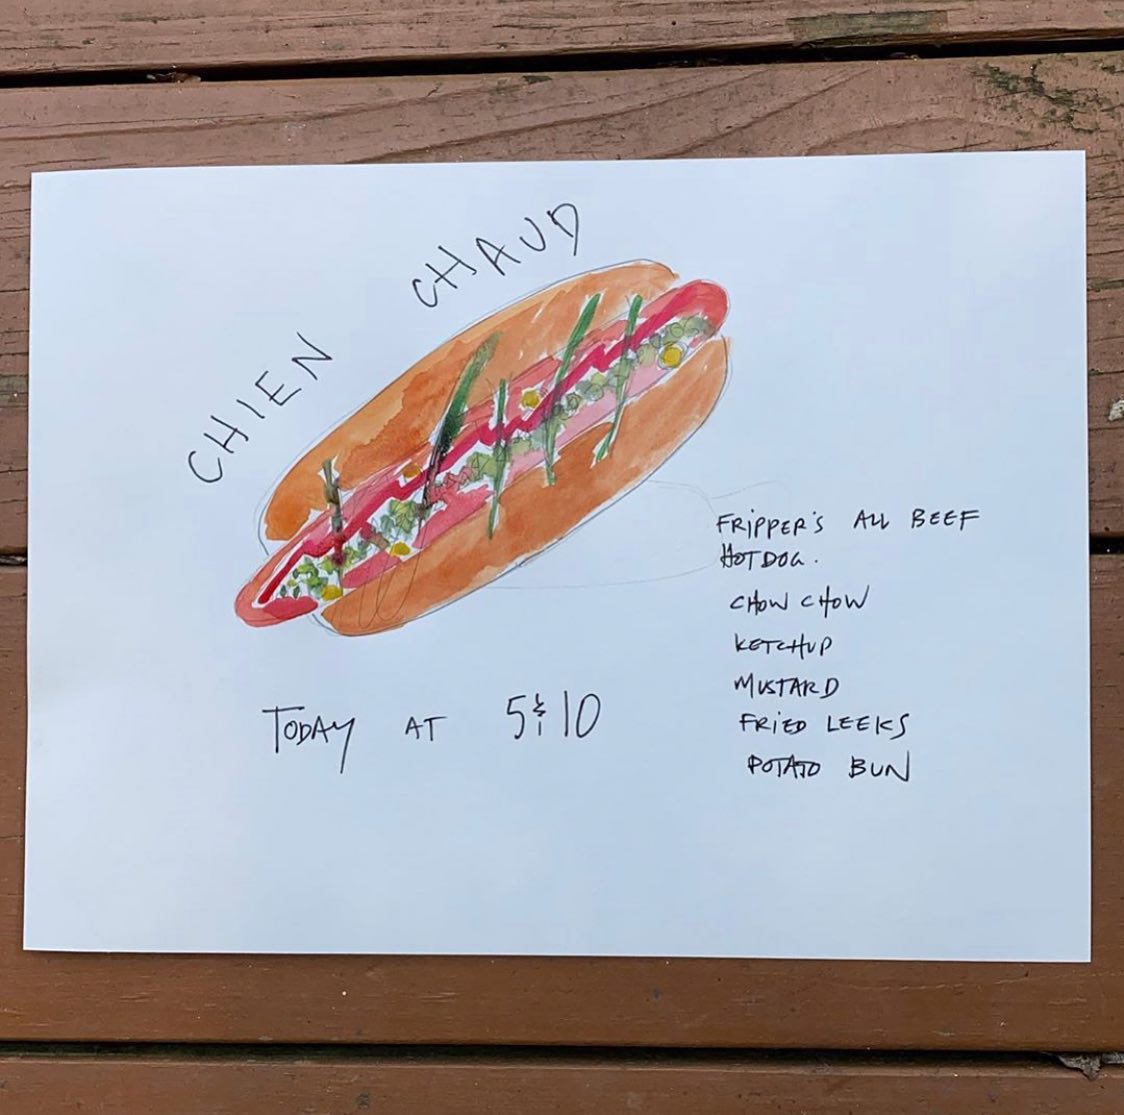 CHIEN CHAUD
FRIPPER'S ALL BEEF
HOT DOG.
CHOW CHOW
KETCHUP
MUSTARD
FRIED LEEKS
POTATO BUN
TODAY AT 5 & 10